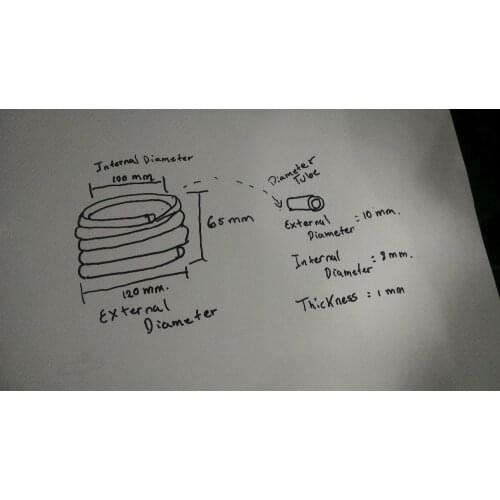 Internal Diameter
100 mm.
65 mm
120 mm.
External
Diameter
Diameter
Tube
External
Diameter = 10 mm.
Internal
Diameter = 8 mm.
Thickness = 1 mm